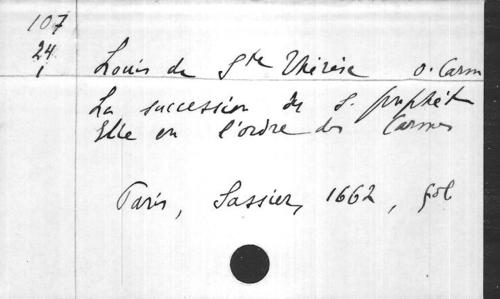 107
24
1
Louis de Ste Thérèse o. Carm
La succession du S. prophète
Elie en l'ordre des Carmes
Paris, Sassier, 1662, fol